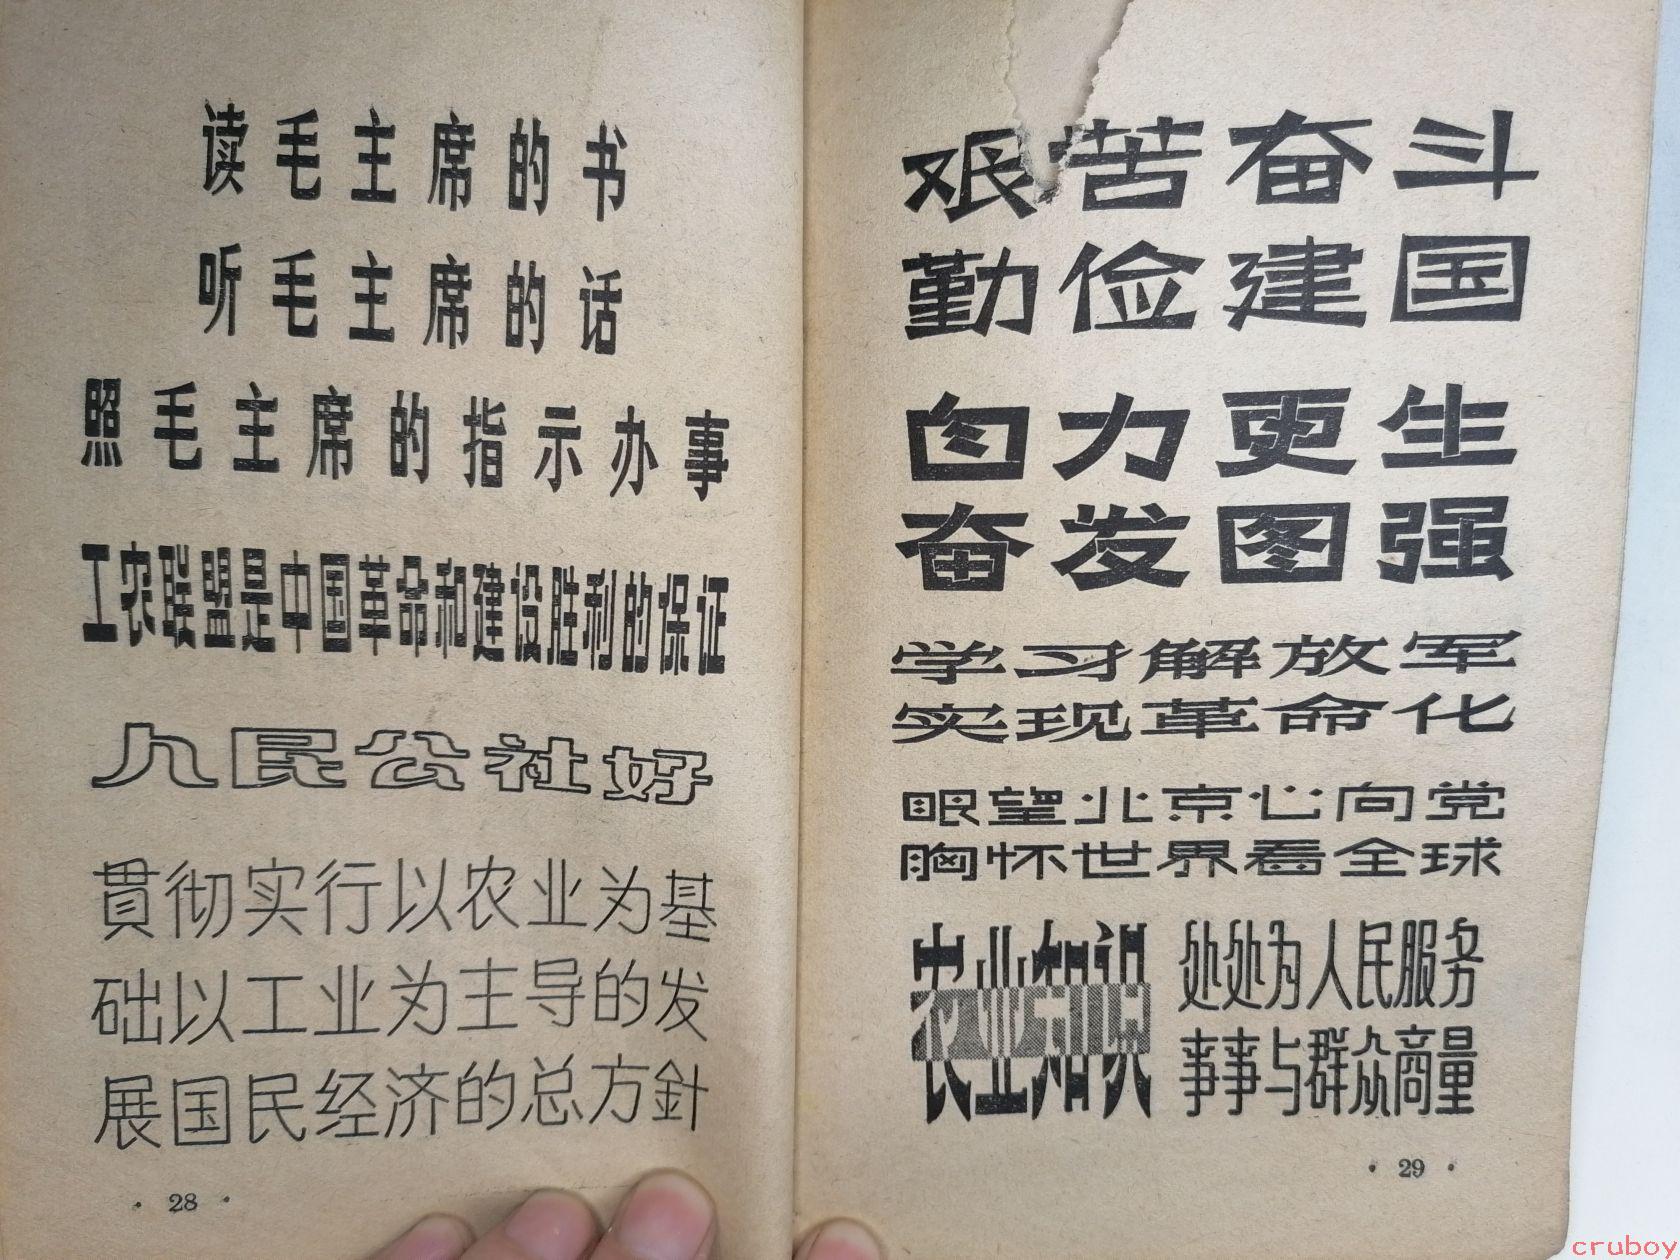 读毛主席的书
听毛主席的话
照毛主席的指示办事
工农联盟是中国革命和建设胜利的保证
人民公社好
貫彻实行以农业为基
础以工业为主导的发
展国民经济的总方針
· 28 ·
艰苦奋斗
勤俭建国
自力更生
奋发图强
学习解放军
实现革命化
眼望北京心向党
胸怀世界看全球
农业知识
处处为人民服务
事事与群众商量
· 29 ·
cruboy